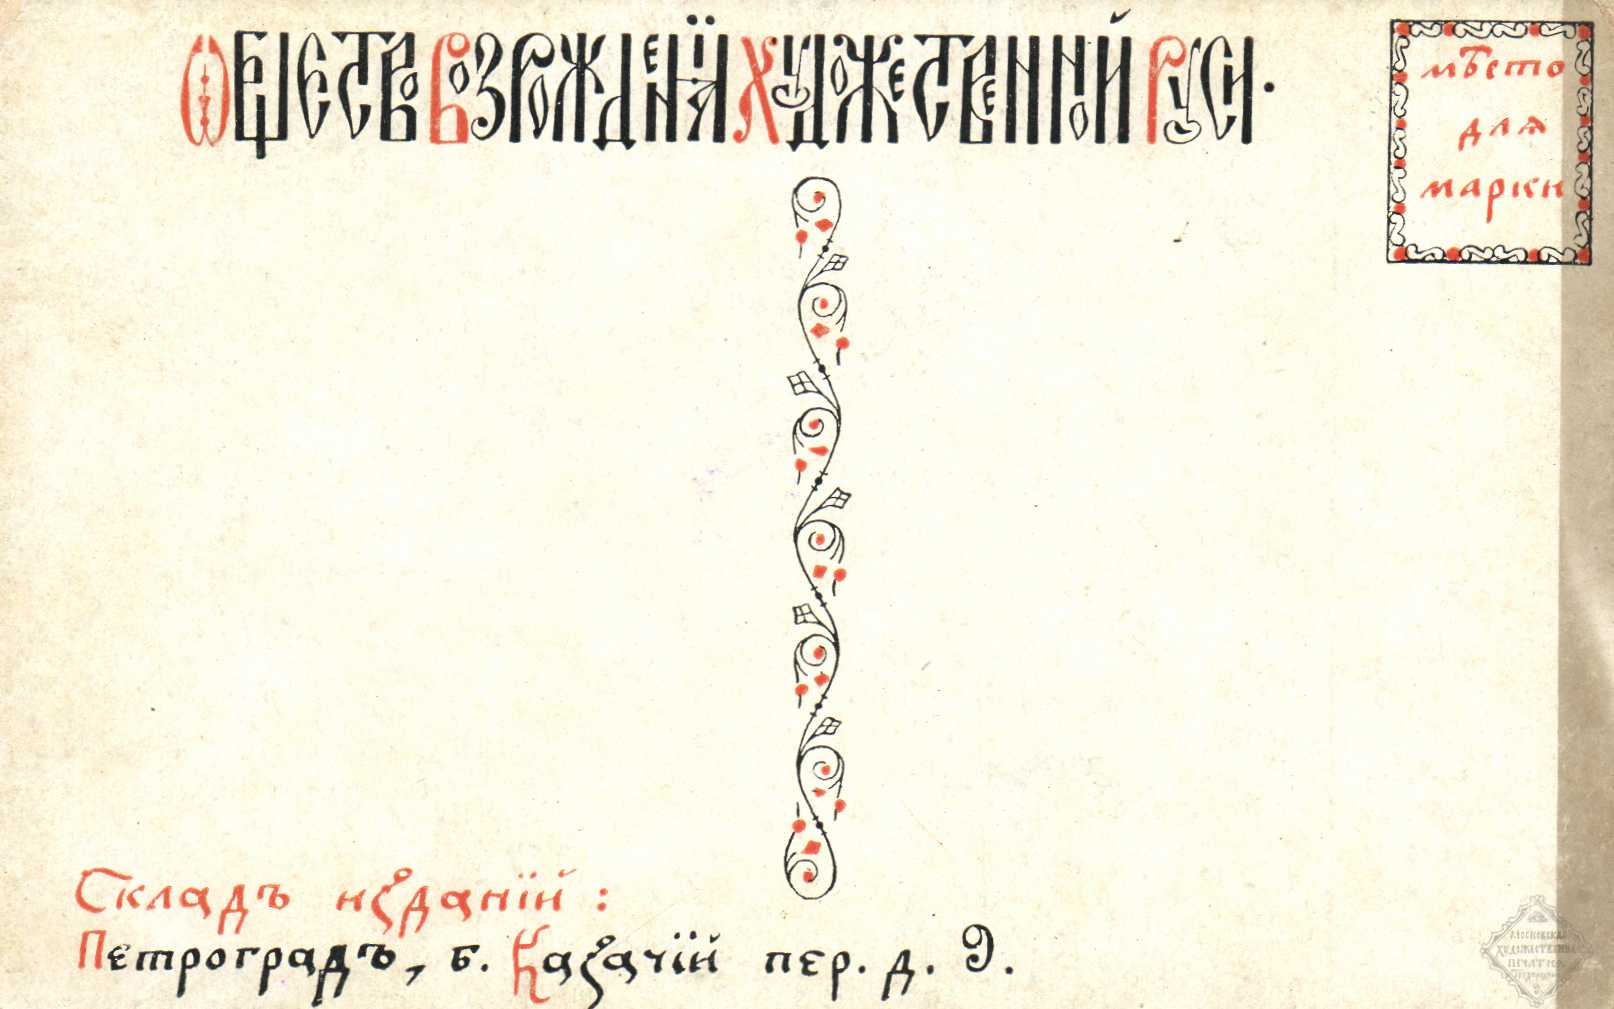 ОБЩЕСТВО ВОЗРОЖДЕНIЯ ХУДОЖЕСТВЕННОЙ РУСИ.
мѣсто
для
марки
Складъ изданій:
Петроградъ, б. Казачій пер. д. 9.
МОСКОВСКАЯ
ХУДОЖЕСТВЕННАЯ
ПЕЧАТНЯ